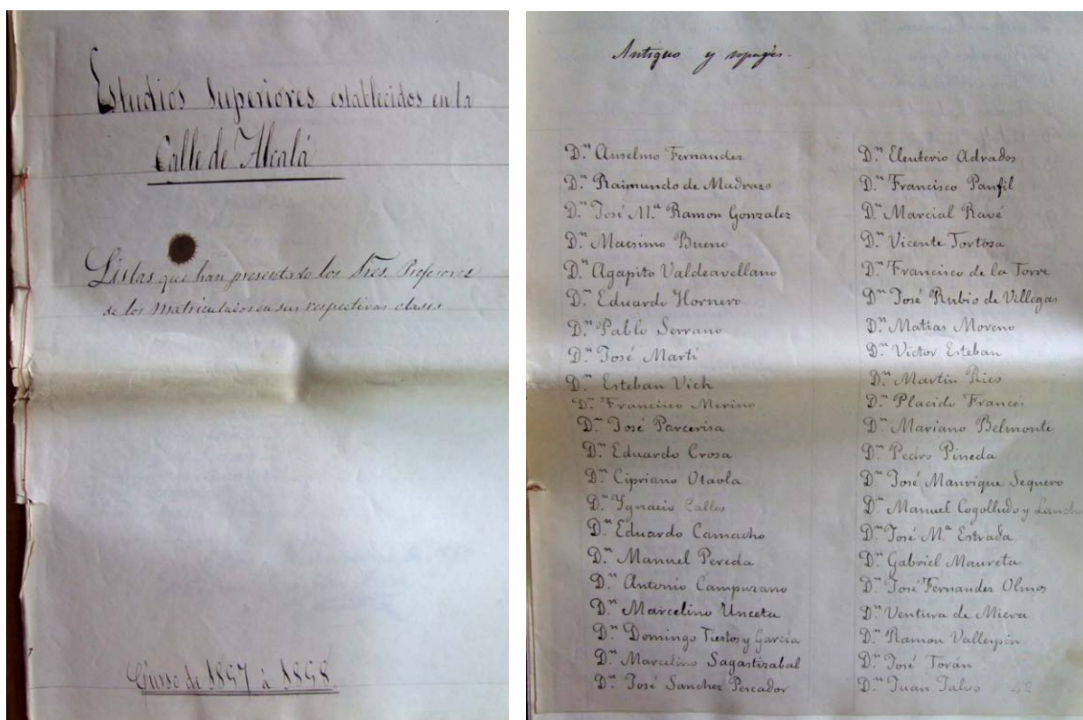 Estudios Superiores establecidos en la
Calle de Alcalá
Listas que han presentado los Sres. Profesores
de los matriculados en sus respectivas clases
Curso de 1857 á 1858.
Antiguo y ropages.
D.ⁿ Anselmo Fernandez
D.ⁿ Raimundo de Madrazo
D.ⁿ José M.ª Ramon Gonzalez
D.ⁿ Macsimo Bueno
D.ⁿ Agapito Valdeavellano
D.ⁿ Eduardo Hornero
D.ⁿ Pablo Serrano
D.ⁿ José Martí
D.ⁿ Esteban Vich
D.ⁿ Francisco Merino
D.ⁿ José Parcerisa
D.ⁿ Eduardo Crosa
D.ⁿ Cipriano Otaola
D.ⁿ Ygnacio Calles
D.ⁿ Eduardo Camacho
D.ⁿ Manuel Pereda
D.ⁿ Antonio Campuzano
D.ⁿ Marcelino Unceta
D.ⁿ Domingo Tiestos y García
D.ⁿ Marcelino Sagastizabal
D.ⁿ José Sanchez Pescador
D.ⁿ Eleuterio Adrados
D.ⁿ Francisco Panfil
D.ⁿ Marcial Ravé
D.ⁿ Vicente Tortosa
D.ⁿ Francisco de la Torre
D.ⁿ José Rubio de Villegas
D.ⁿ Matias Moreno
D.ⁿ Victor Esteban
D.ⁿ Martin Rico
D.ⁿ Placido Francés
D.ⁿ Mariano Belmonte
D.ⁿ Pedro Pineda
D.ⁿ José Manrique Sequero
D.ⁿ Manuel Cogolludo y
D.ⁿ José M.ª Estrada
D.ⁿ Gabriel Maureta
D.ⁿ José Fernandez Olmos
D.ⁿ Ventura de Miera
D.ⁿ Ramon Vallespin
D.ⁿ José Torán
D.ⁿ Juan Talvo 42